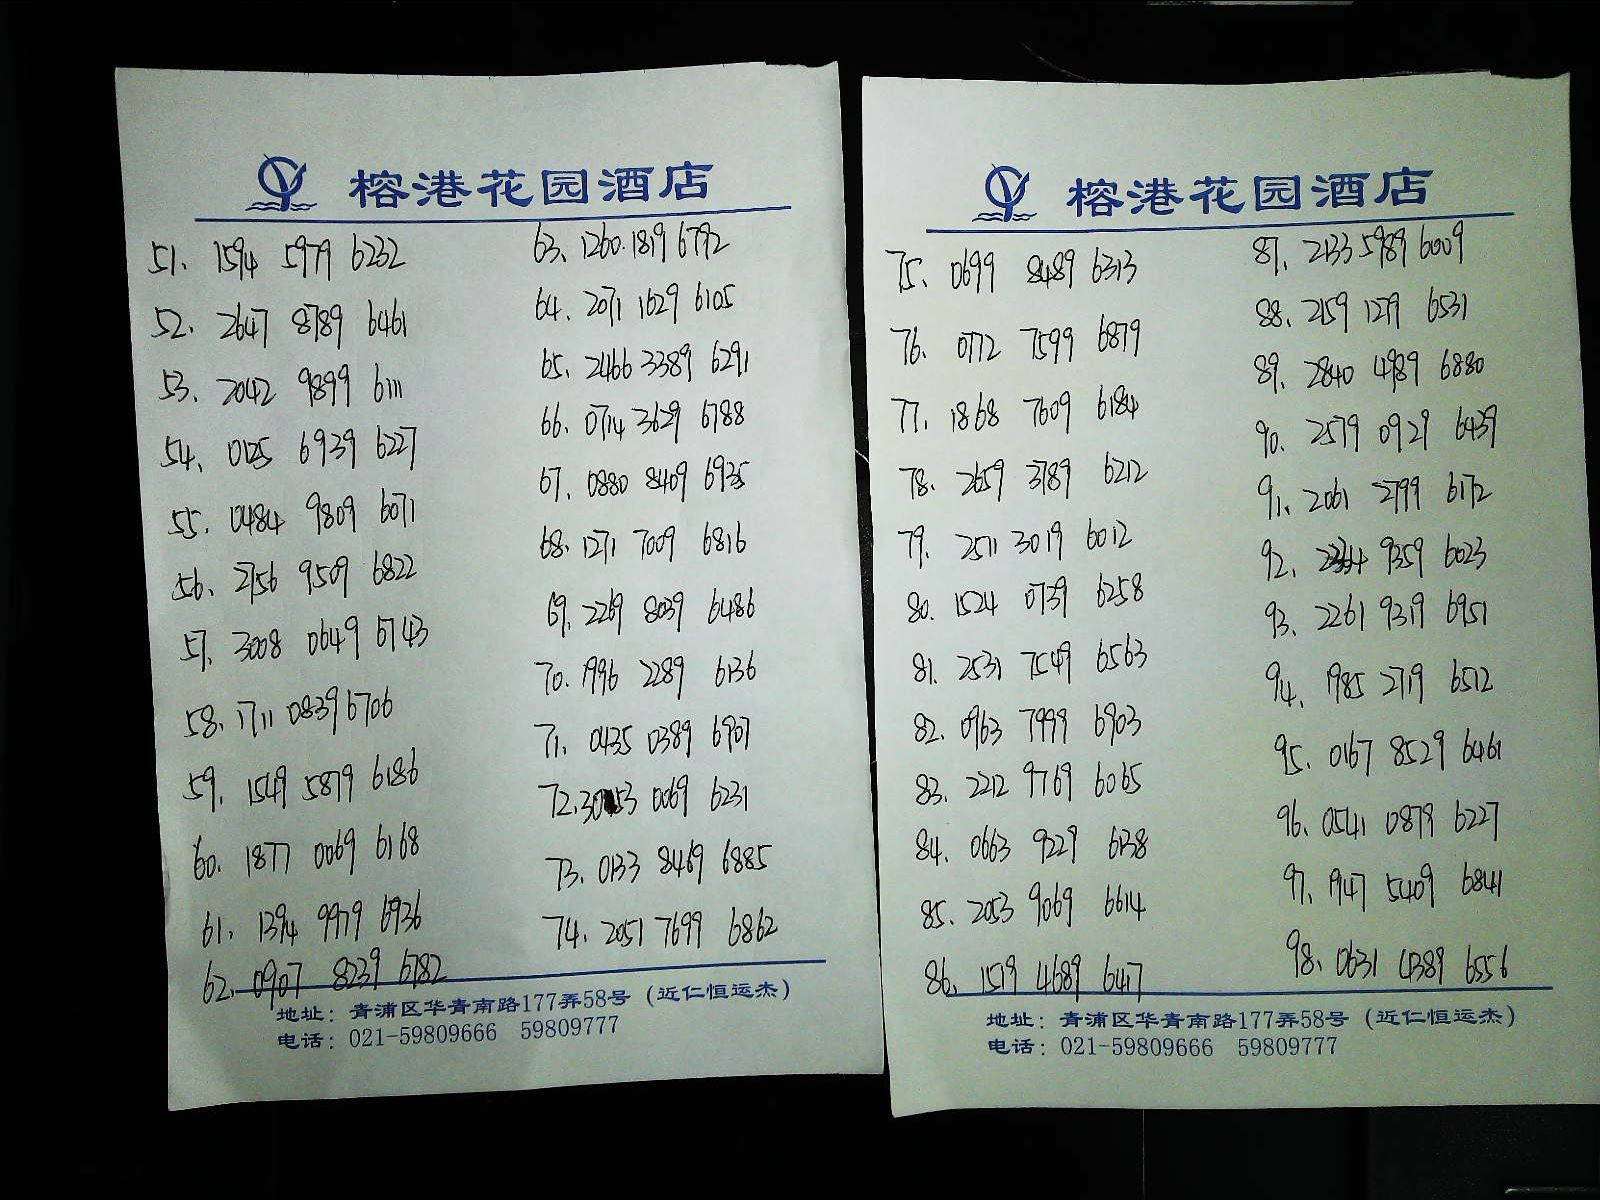 榕港花园酒店
51. 1594 5979 6232
52. 2647 8789 6461
53. 2042 9899 6111
54. 0125 6939 6227
55. 0484 9809 6071
56. 2756 9509 6822
57. 3008 0649 6743
58. 1711 0839 6706
59. 1549 5879 6186
60. 1877 0069 6168
61. 1394 9979 6936
62. 0907 8239 6782
63. 1260 1819 6792
64. 2071 1629 6105
65. 2466 3389 6291
66. 0714 3629 6788
67. 0880 8409 6935
68. 1271 7009 6816
69. 2269 8039 6486
70. 1996 2289 6136
71. 0435 0389 6907
72. 3053 0069 6231
73. 0133 8469 6885
74. 2051 7699 6862
地址：青浦区华青南路177弄58号（近仁恒运杰）
电话：021-59809666 59809777
榕港花园酒店
75. 0699 8489 6313
76. 0772 7599 6879
77. 1868 7609 6184
78. 2659 3789 6212
79. 2511 3019 6012
80. 1524 0739 6258
81. 2531 7549 6563
82. 0963 7999 6903
83. 2212 9769 6065
84. 0663 9229 6138
85. 2053 9069 6614
86. 1519 4689 6417
87. 2133 5989 6009
88. 2159 1279 6531
89. 2840 4989 6880
90. 2579 0929 6439
91. 2061 2799 6172
92. 9359 6023
93. 2261 9319 6951
94. 1985 2719 6512
95. 0167 8529 6461
96. 0541 0879 6227
97. 1947 5409 6841
98. 0631 4389 6556
地址：青浦区华青南路177弄58号（近仁恒运杰）
电话：021-59809666 59809777